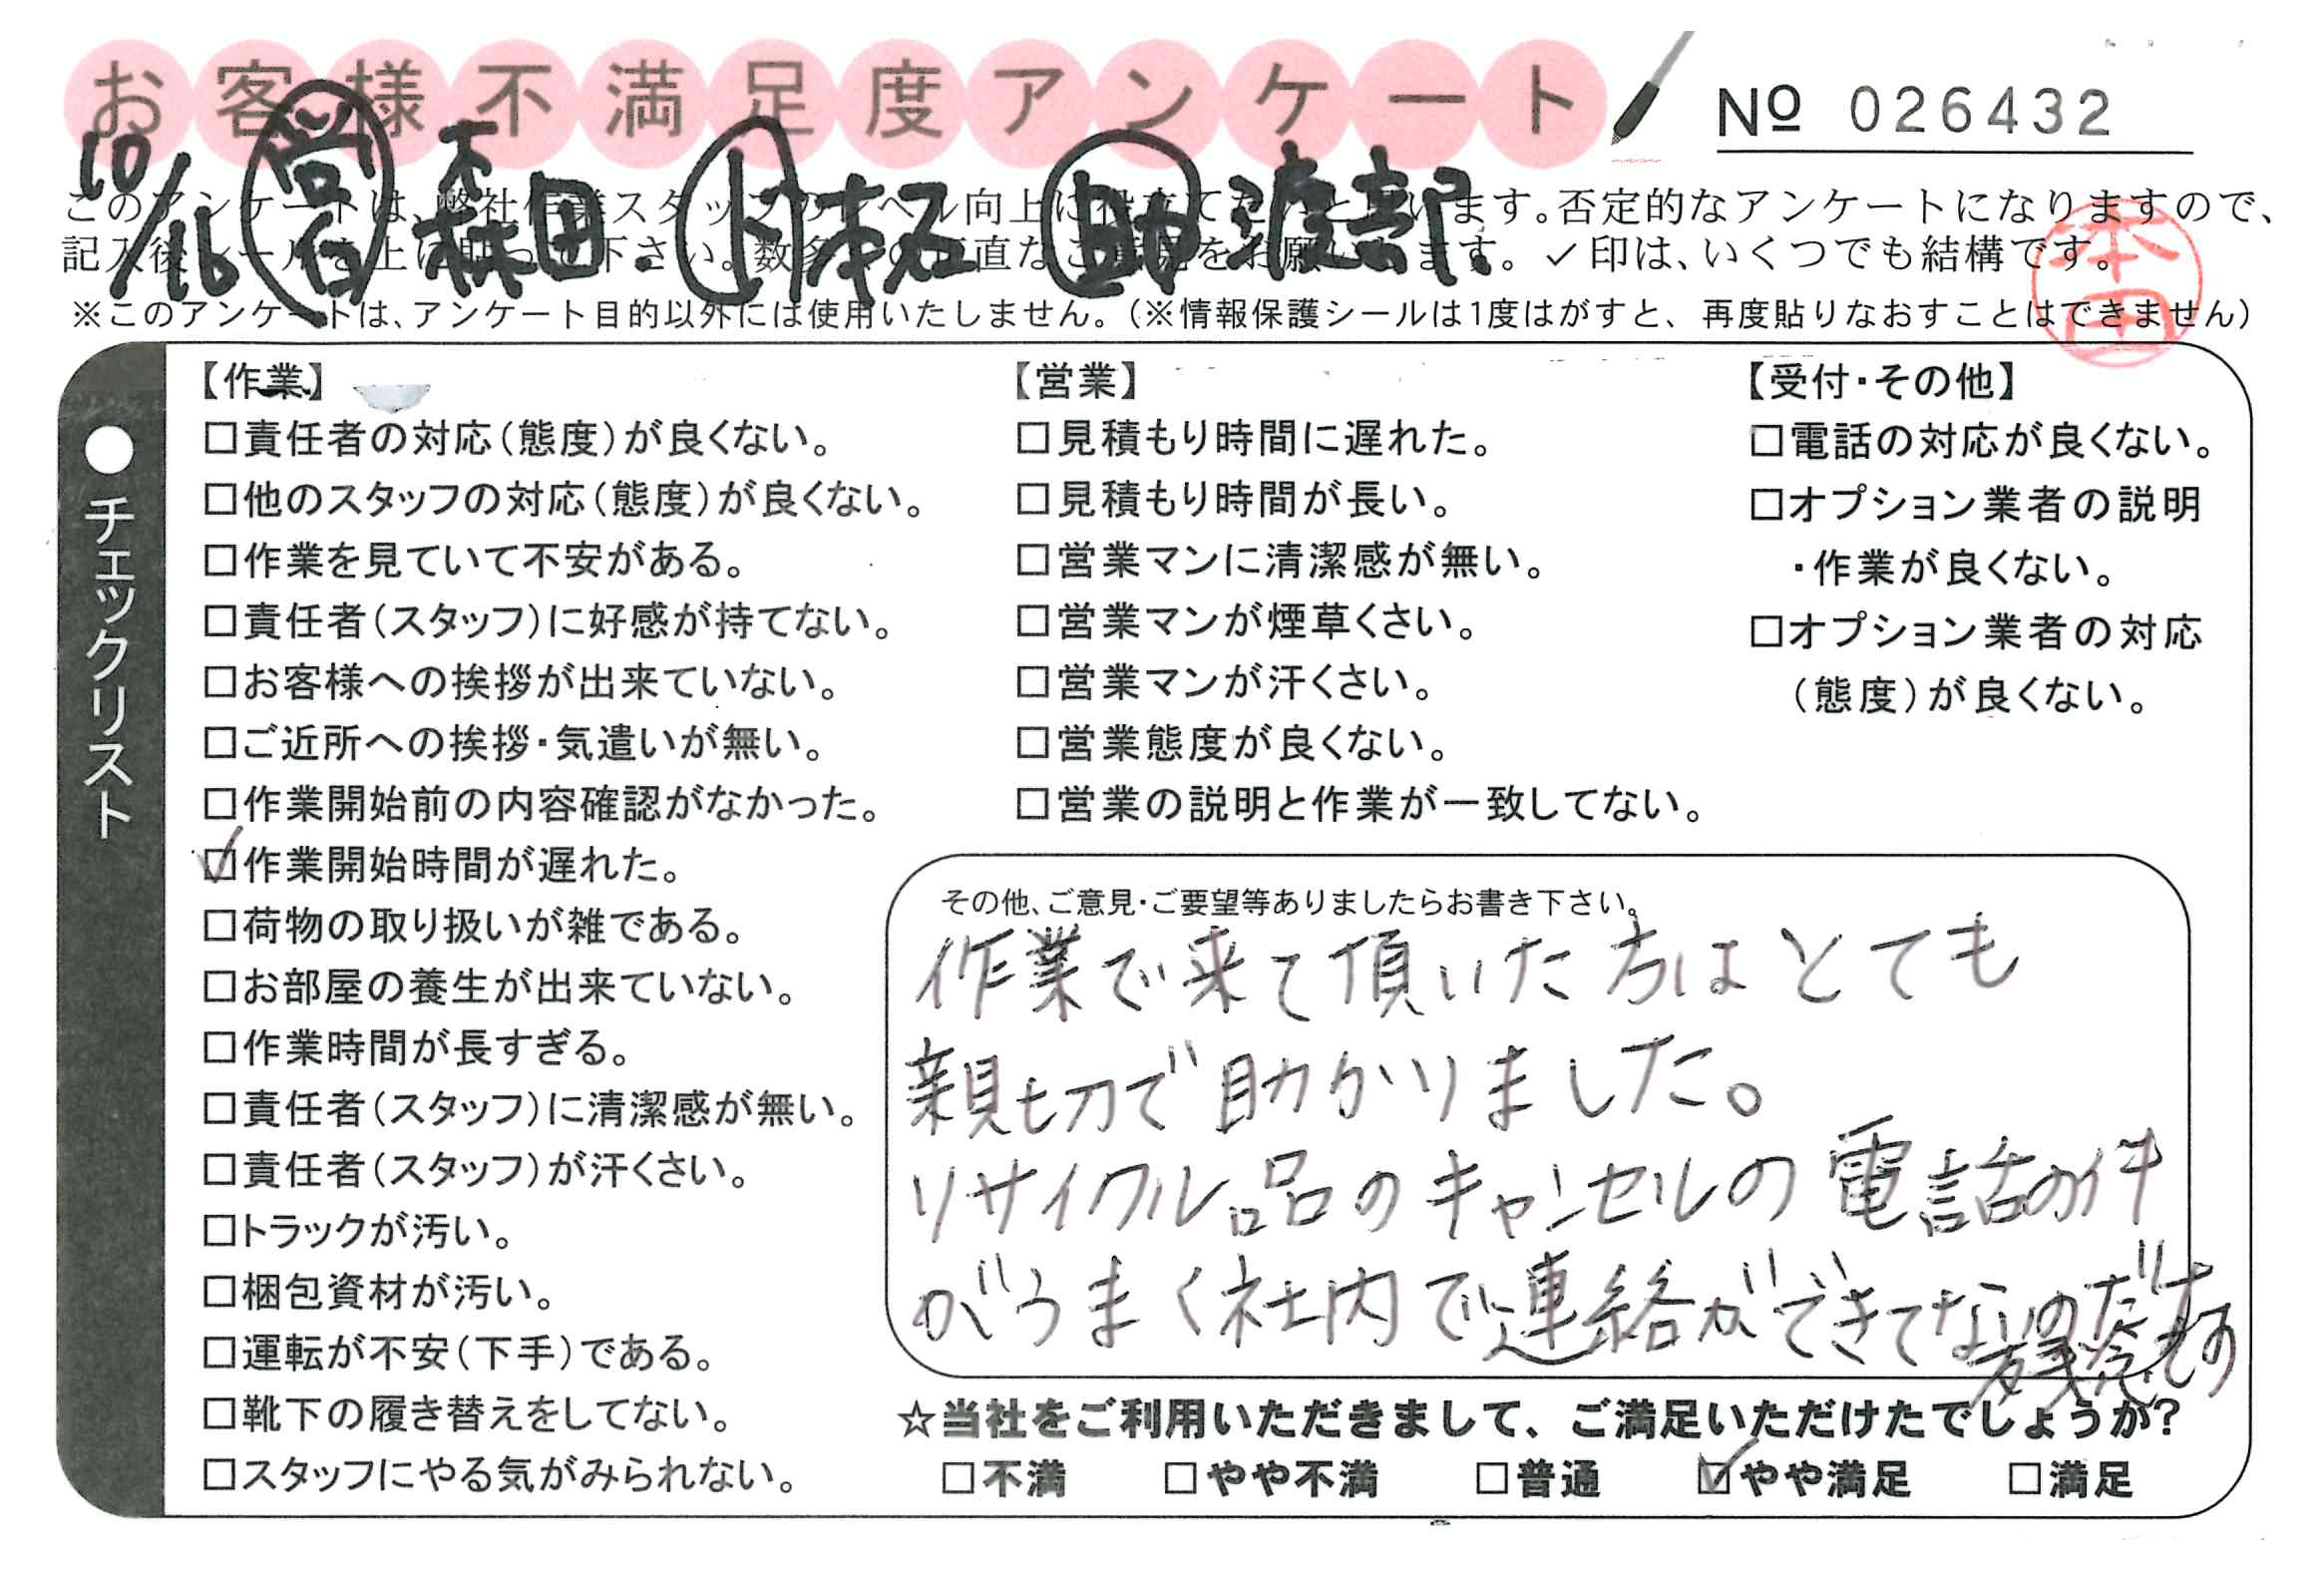 お客様不満足度アンケート
№ 026432
10/16 営 森田 ト 本石 助 渡部
このアンケートは、弊社作業スタッフのレベル向上に役立てたいと思います。否定的なアンケートになりますので、
記入後シールを上に貼って下さい。数多くの正直なご意見をお願いします。✓印は、いくつでも結構です。
本田
※このアンケートは、アンケート目的以外には使用いたしません。(※情報保護シールは1度はがすと、再度貼りなおすことはできません)
●チェックリスト
【作業】
□責任者の対応(態度)が良くない。
□他のスタッフの対応(態度)が良くない。
□作業を見ていて不安がある。
□責任者(スタッフ)に好感が持てない。
□お客様への挨拶が出来ていない。
□ご近所への挨拶・気遣いが無い。
□作業開始前の内容確認がなかった。
☑作業開始時間が遅れた。
□荷物の取り扱いが雑である。
□お部屋の養生が出来ていない。
□作業時間が長すぎる。
□責任者(スタッフ)に清潔感が無い。
□責任者(スタッフ)が汗くさい。
□トラックが汚い。
□梱包資材が汚い。
□運転が不安(下手)である。
□靴下の履き替えをしてない。
□スタッフにやる気がみられない。
【営業】
□見積もり時間に遅れた。
□見積もり時間が長い。
□営業マンに清潔感が無い。
□営業マンが煙草くさい。
□営業マンが汗くさい。
□営業態度が良くない。
□営業の説明と作業が一致してない。
【受付・その他】
□電話の対応が良くない。
□オプション業者の説明
・作業が良くない。
□オプション業者の対応
(態度)が良くない。
その他、ご意見・ご要望等ありましたらお書き下さい。
作業で来て頂いた方はとても
親切で助かりました。
リサイクル品のキャンセルの電話の件
がうまく社内で連絡ができてないのだけ
残念
☆当社をご利用いただきまして、ご満足いただけたでしょうか?
□不満 □やや不満 □普通 ☑やや満足 □満足